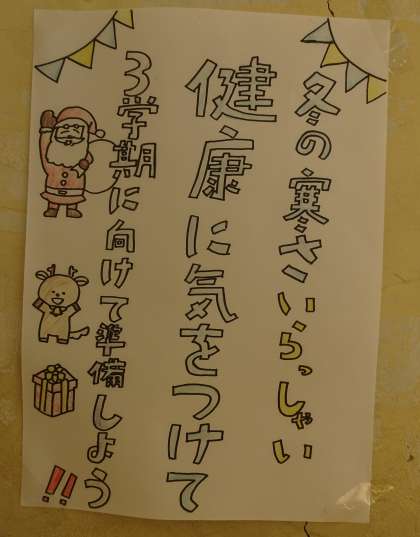 冬の寒さいらっしゃい
健康に気をつけて
3学期に向けて準備しよう!!